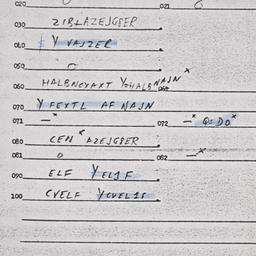 020 021
030 ZIRLAZEJGSER
040 Y VAJZER
050
060 HALBNOYAXT YOHALB NAJN
070 Y FEXTL AF NAJN
071 072 QSDO
080 CEN AZEJGSER
081 082
090 ELF YELIF
100 CVELF YCVELIF